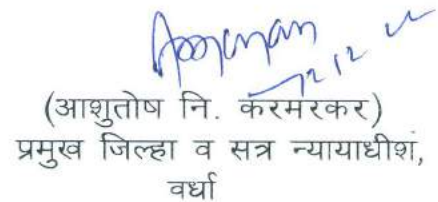 12/12/22
(आशुतोष नि. करमरकर)
प्रमुख जिल्हा व सत्र न्यायाधीश,
वर्धा